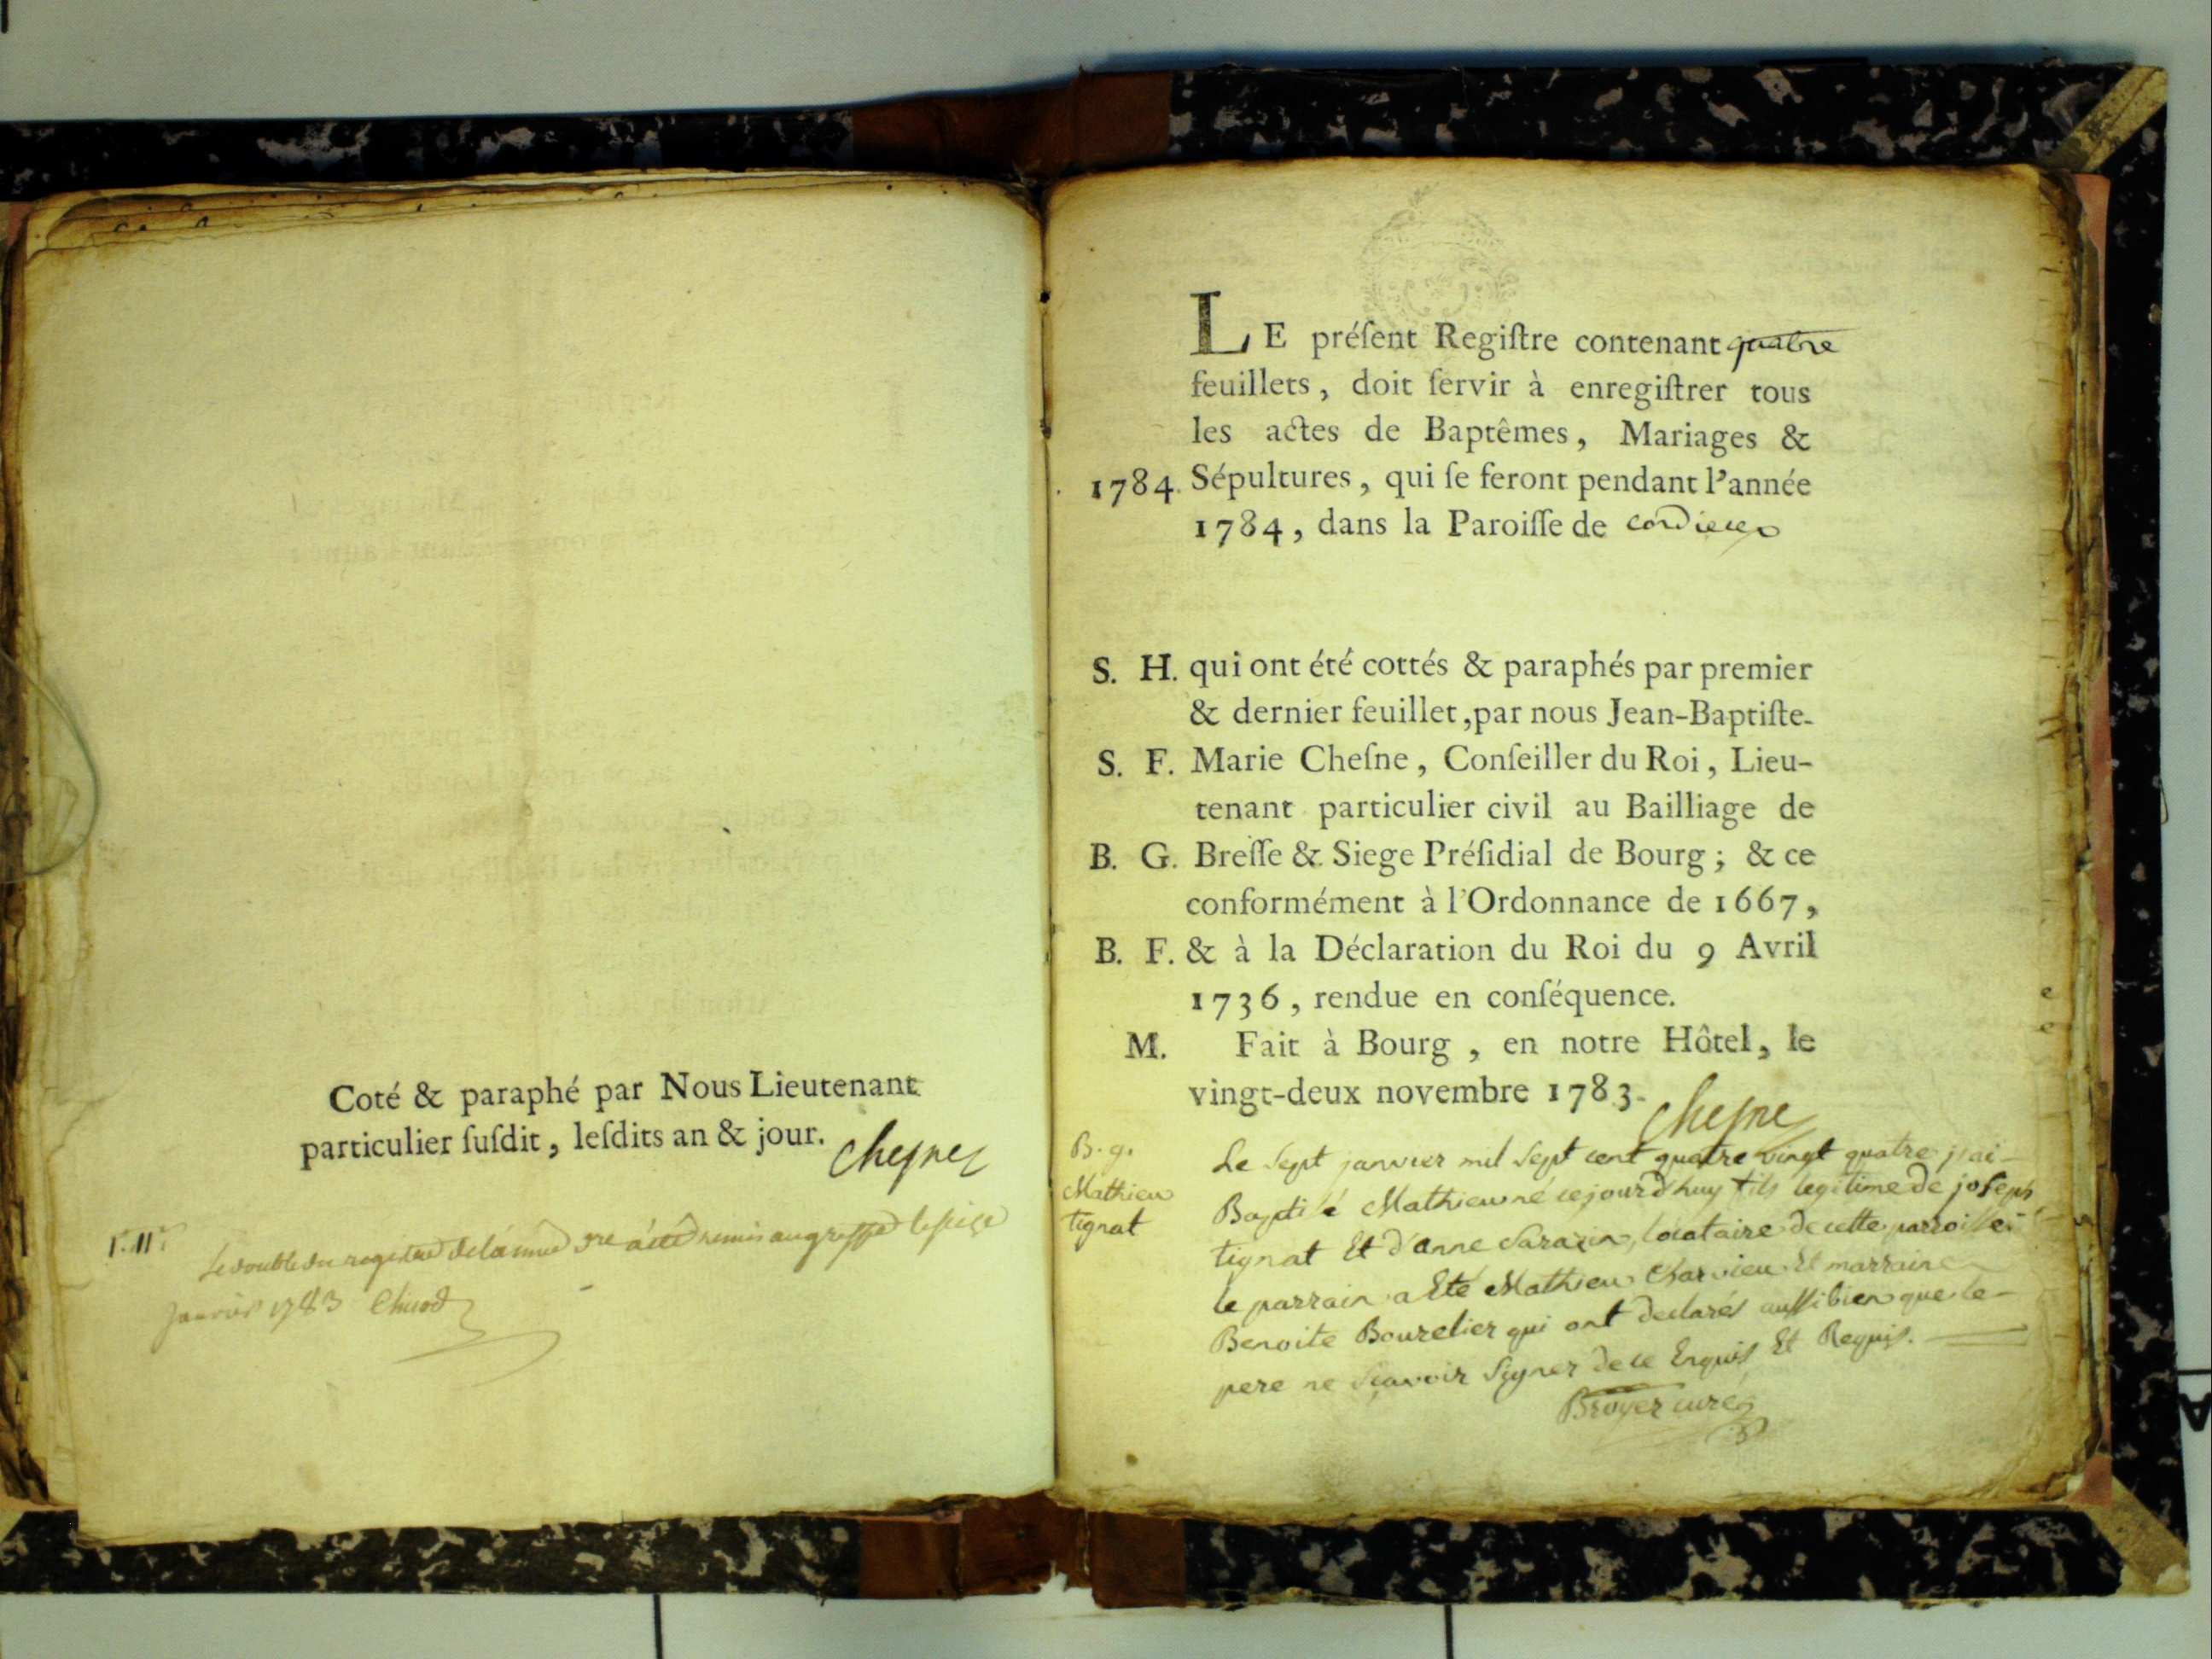 Coté & paraphé par Nous Lieutenant
particulier ſuſdit, leſdits an & jour.
Chesne
Le double du registre de l'année a été remis au greffe le seize
Janvier 1783
LE préſent Regiſtre contenant quatre
feuillets, doit ſervir à enregiſtrer tous
les actes de Baptêmes, Mariages &
1784. Sépultures, qui ſe feront pendant l'année
1784, dans la Paroiſſe de Cordieux
S. H. qui ont été cottés & paraphés par premier
& dernier feuillet, par nous Jean-Baptiſte-
S. F. Marie Cheſne, Conſeiller du Roi, Lieu-
tenant particulier civil au Bailliage de
B. G. Breſſe & Siege Préſidial de Bourg; & ce
conformément à l'Ordonnance de 1667,
B. F. & à la Déclaration du Roi du 9 Avril
1736, rendue en conſéquence.
M. Fait à Bourg, en notre Hôtel, le
vingt-deux novembre 1783.
Chesne
B. g.
Mathieu
tignat
Le Sept janvier mil Sept cent quatre vingt quatre j'ai
Baptisé Mathieu né cejourd'huy fils legitime de joseph
tignat Et d'anne Sarazin, locataire de cette parroisse
le parrain a Eté Mathieu Charvieu Et marraine
Benoite Bourelier qui ont declarés aussi bien que le
pere ne Sçavoir Signer de ce Enquis Et Requis.
Broyer curé